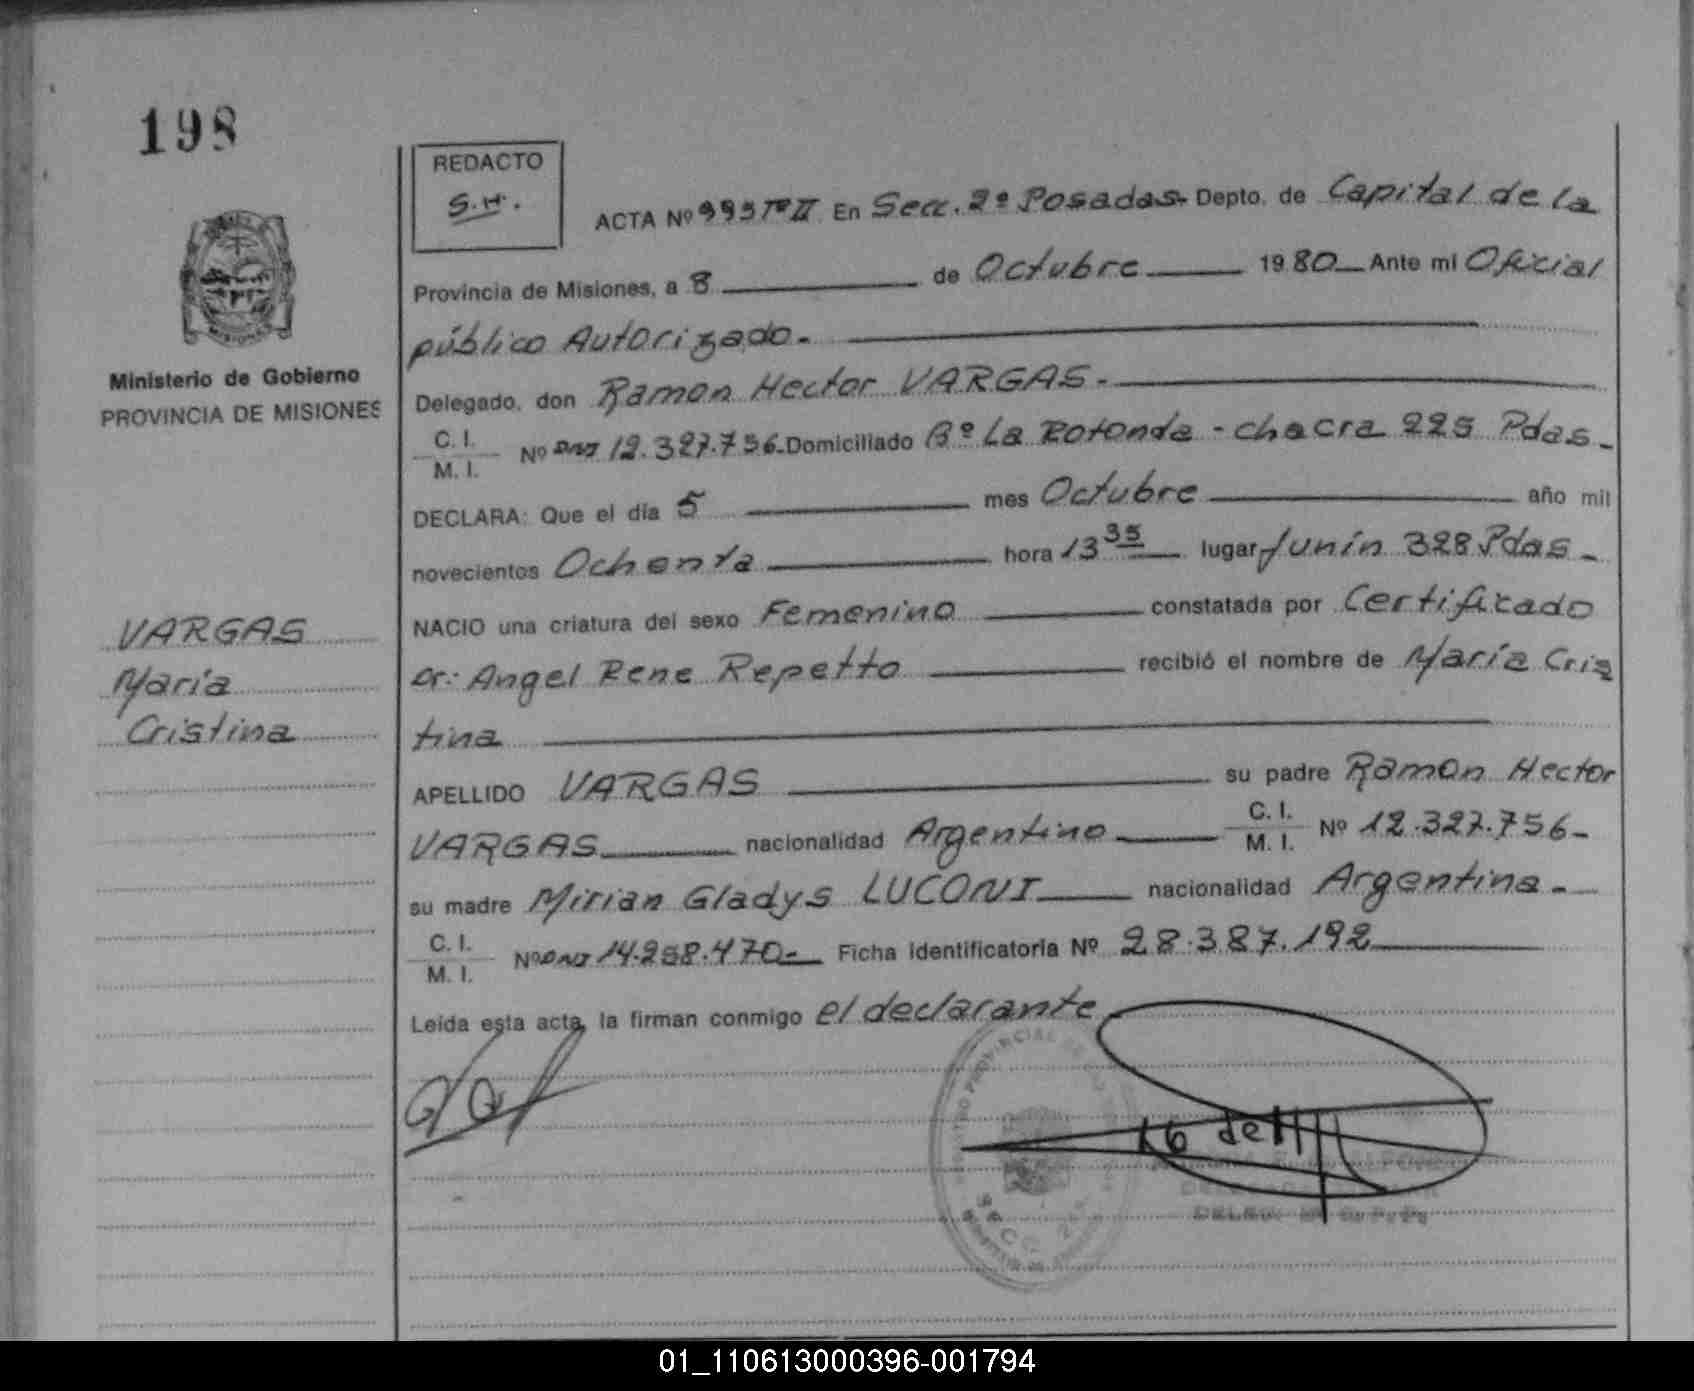 198
REDACTO
S.H.
ACTA Nº 993 Tº II En Secc. 2º Posadas. Depto. de Capital de la
Provincia de Misiones, a 8 de Octubre 1980 Ante mi Oficial
público Autorizado.
Ministerio de Gobierno
PROVINCIA DE MISIONES
Delegado, don Ramon Hector VARGAS.
C. I.
M. I. Nº DNI 12.327.756. Domiciliado Bº La Rotonda - chacra 225 Pdas.
DECLARA: Que el día 5 mes Octubre año mil
novecientos Ochenta hora 13 35 lugar Junín 328 Pdas.
NACIO una criatura del sexo Femenino constatada por Certificado
Dr: Angel Rene Repetto recibió el nombre de María Cris
tina
VARGAS
María
Cristina
APELLIDO VARGAS su padre Ramon Hector
VARGAS nacionalidad Argentino C. I. M. I. Nº 12.327.756-
su madre Mirian Gladys LUCONI nacionalidad Argentina.
C. I.
M. I. Nº DNI 14.258.470- Ficha Identificatoria Nº 28.387.192
Leída esta acta, la firman conmigo el declarante
SECC. 2
01_110613000396-001794